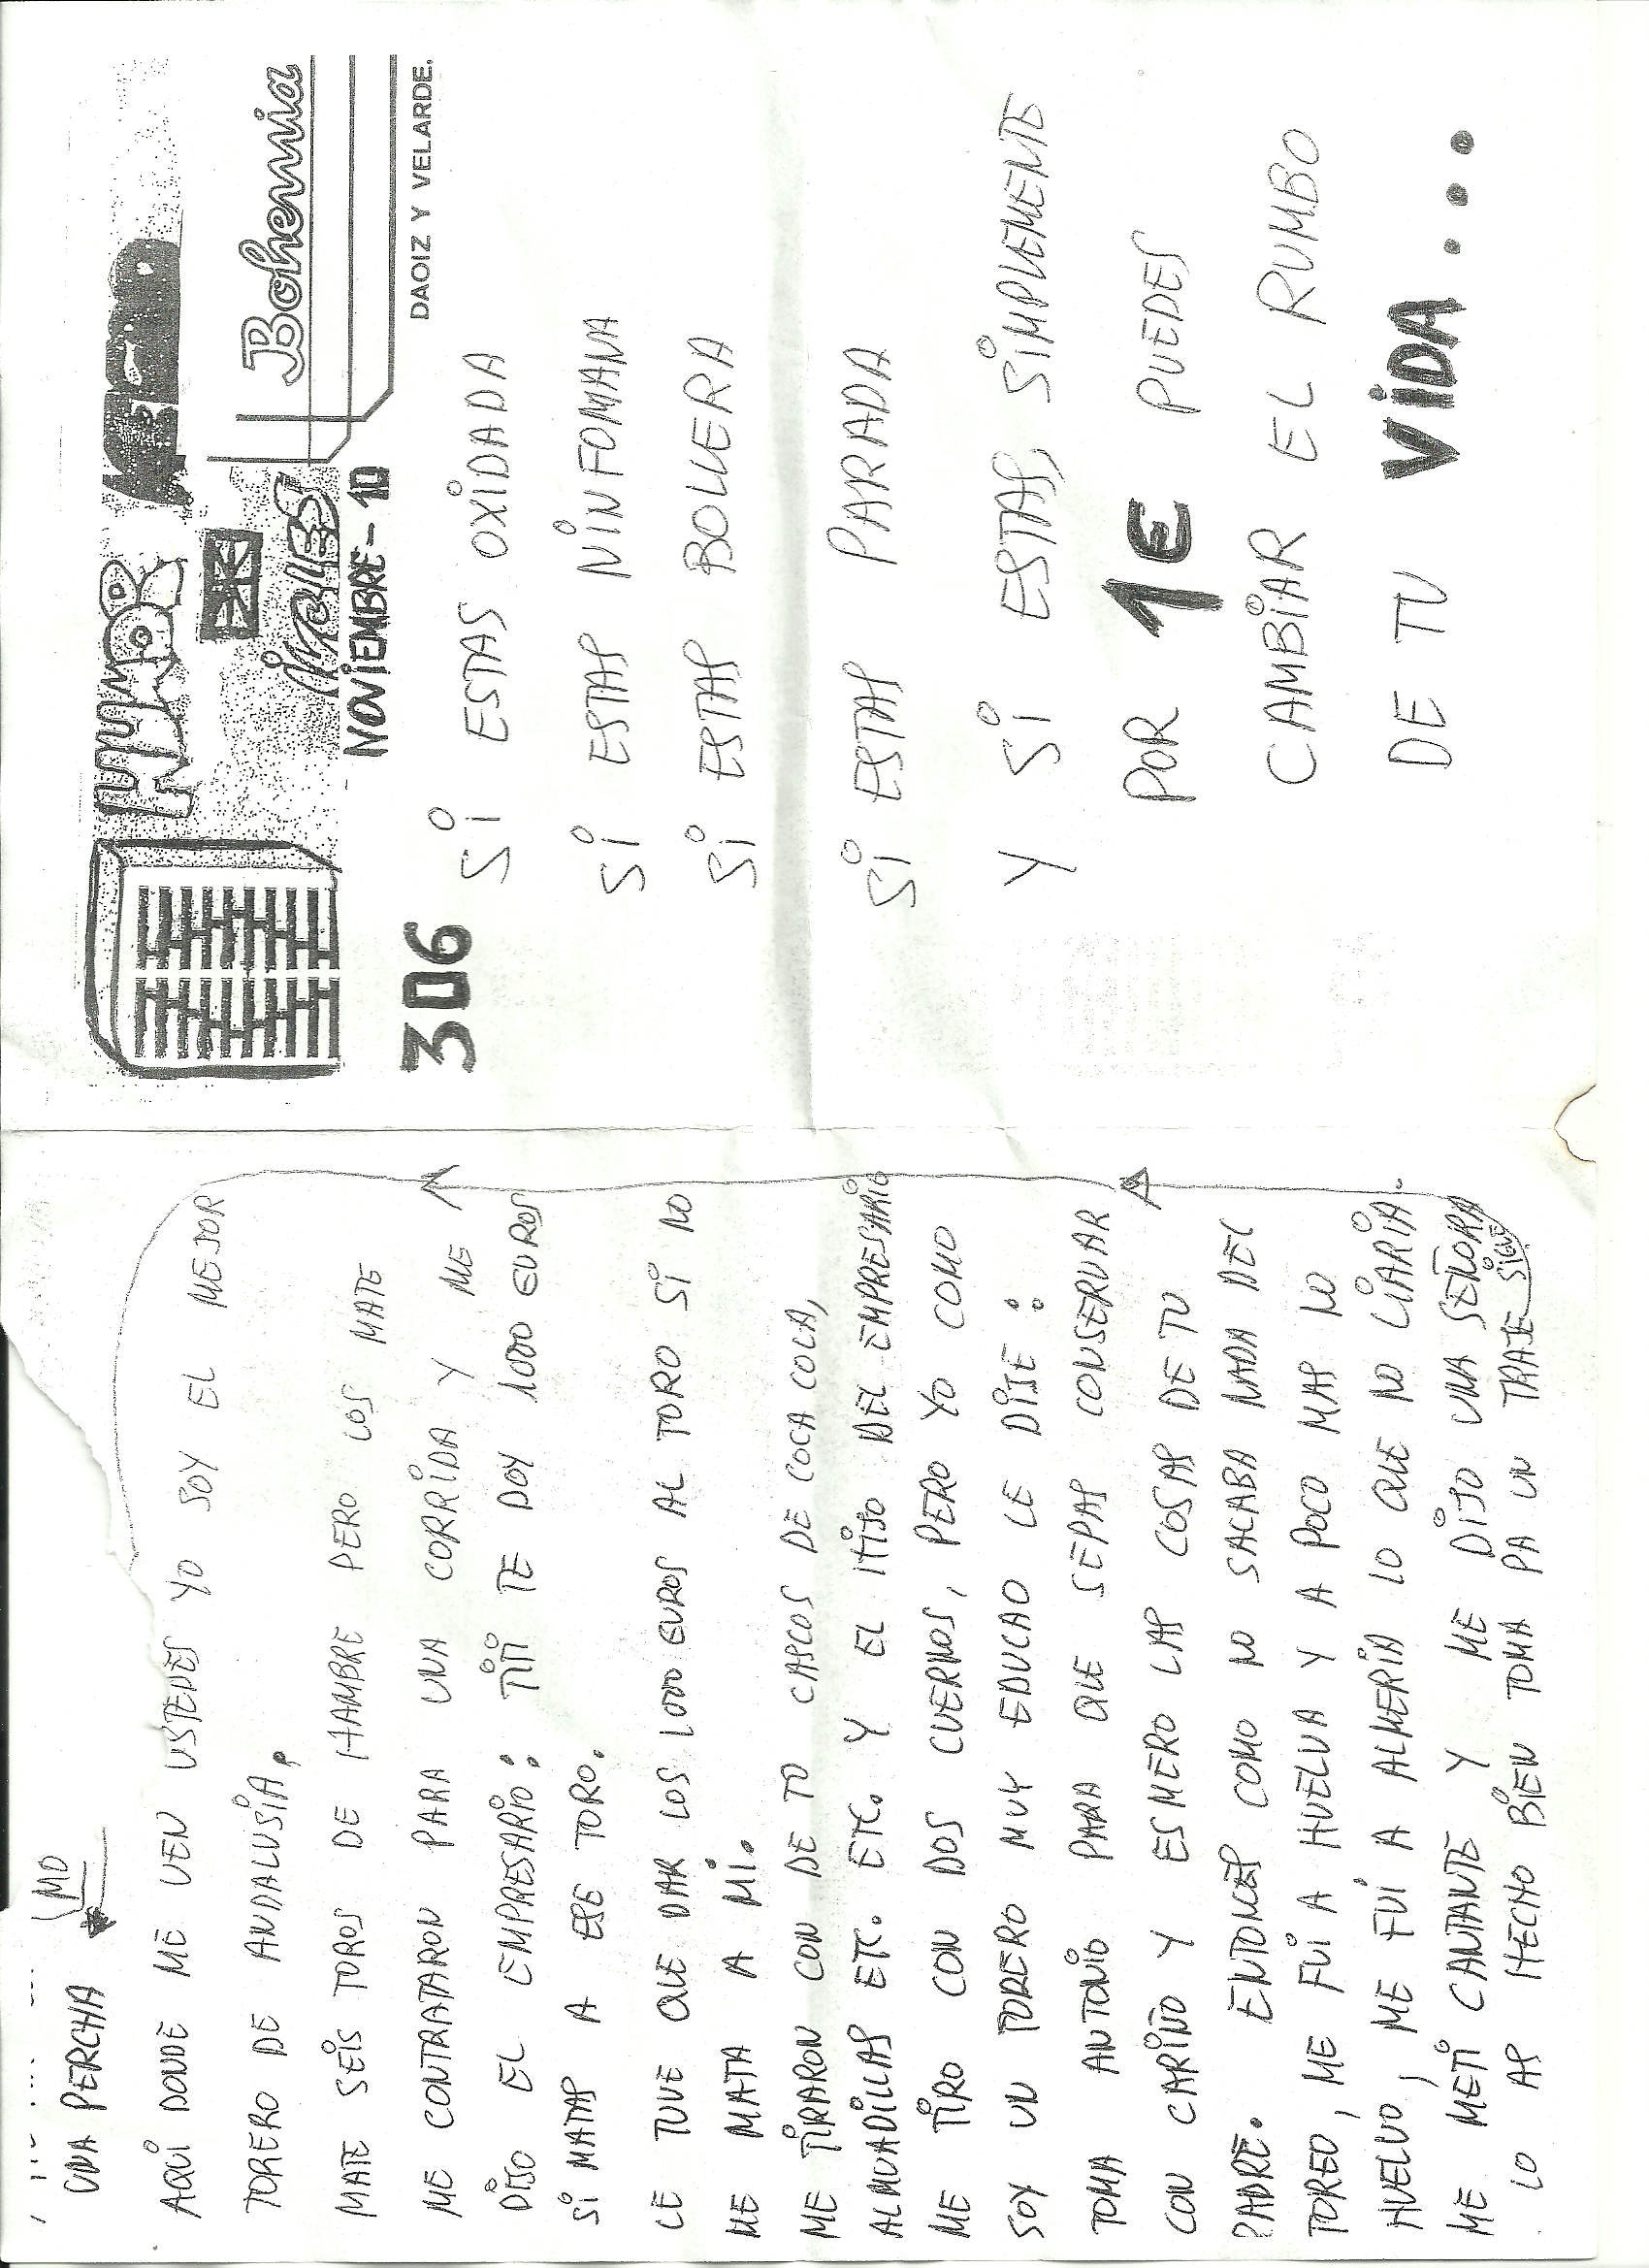 HUMOR NEGRO
INGLES
Bohemia
NOVIEMBRE-10
DAOIZ Y VELARDE.
306
SI ESTAS OXIDADA
SI ESTAS NINFOMANA
SI ESTAS BOLLERA
SI ESTAS PARADA
Y SI ESTAS, SIMPLEMENTE
POR 1€ PUEDES
CAMBIAR EL RUMBO
DE TU VIDA...
UNA PERCHA
AQUI DONDE ME VEN USTEDES YO SOY EL MEJOR
TORERO DE ANDALUSIA,
MATE SEIS TOROS DE HAMBRE PERO LOS MATE
ME CONTRATARON PARA UNA CORRIDA Y ME
DIJO EL EMPRESARIO: TITI TE DOY 1000 EUROS
SI MATAS A ESE TORO.
LE TUVE QUE DAR LOS 1000 EUROS AL TORO SI NO
ME MATA A MI.
ME TIRARON CON DE TO CASCOS DE COCA COLA,
ALMUADILLAS ETC. ETC. Y EL HIJO DEL EMPRESARIO
ME TIRO CON DOS CUERNOS, PERO YO COMO
SOY UN TORERO MUY EDUCAO LE DIJE:
TOMA ANTONIO PARA QUE SEPAS CONSERVAR
CON CARIÑO Y ESMERO LAS COSAS DE TU
PADRE. ENTONCES COMO NO SACABA NADA DEL
TOREO, ME FUI A HUELVA Y A POCO MAS NO
HUELVO, ME FUI A ALMERIA LO QUE NO LIARIA.
ME METI CANTANTE Y ME DIJO UNA SEÑORA
LO AS HECHO BIEN TOMA PA UN TRAJE SIGUE